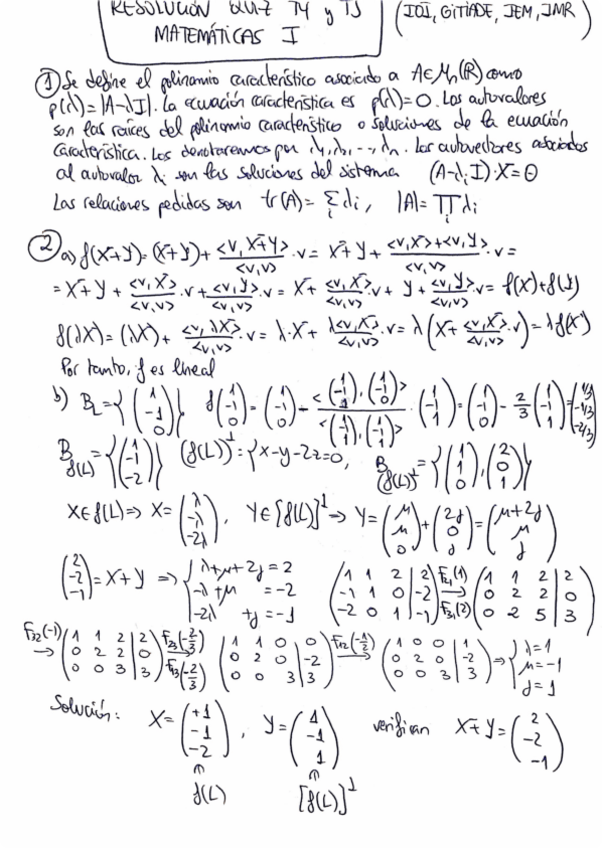 RESOLUCIÓN QUIZ T4 y T5 (IOI, GITIADE, IEM, IMR)
MATEMÁTICAS I
① Se define el polinomio característico asociado a A∈Mn(R) como
p(λ)=|A-λI|. La ecuación característica es p(λ)=0. Los autovalores
son las raíces del polinomio característico o soluciones de la ecuación
característica. Los denotaremos por λ1, λ2, ..., λn. Los autovectores asociados
al autovalor λi son las soluciones del sistema (A-λiI)·X=Θ
Las relaciones pedidas son tr(A)=Σi λi, |A|=∏i λi
② a) f(X+Y)=(X+Y)+ <v,X+Y>/<v,v> ·v= X+Y+ (<v,X>+<v,Y>)/<v,v> ·v=
=X+Y+ <v,X>/<v,v> ·v+ <v,Y>/<v,v> ·v= X+ <v,X>/<v,v> ·v+ Y+ <v,Y>/<v,v> ·v= f(X)+f(Y)
f(λX)=(λX)+ <v,λX>/<v,v> ·v= λ·X+ λ<v,X>/<v,v> ·v= λ(X+ <v,X>/<v,v> ·v)=λf(X)
Por tanto, f es lineal
b) BL={(1 -1 0)} f(1 -1 0)=(1 -1 0)- <(1 -1 1),(1 -1 0)>/<(1 -1 1),(1 -1 1)> ·(1 -1 1)=(1 -1 0)- 2/3 (1 -1 1)=(1/3 -1/3 -2/3)
Bf(L)={(1 -1 -2)} (f(L))⊥={x-y-2z=0, B(f(L))⊥={(1 1 0),(2 0 1)}
X∈f(L)⇒ X=(λ -λ -2λ), Y∈[f(L)]⊥→ Y=(μ μ 0)+(2γ 0 γ)=(μ+2γ μ γ)
(2 -2 -1)=X+Y ⇒ {λ+μ+2γ=2 -λ+μ =-2 -2λ +γ=-1 (1 1 2|2 -1 1 0|-2 -2 0 1|-1) F21(1) → F31(2) (1 1 2|2 0 2 2|0 0 2 5|3)
F32(-1) → (1 1 2|2 0 2 2|0 0 0 3|3) F23(-2/3) → F13(-2/3) (1 1 0|0 0 2 0|-2 0 0 3|3) F12(-1/2) → (1 0 0|1 0 2 0|-2 0 0 3|3) ⇒ {λ=1 μ=-1 γ=1
Solución: X=(+1 -1 -2), Y=(1 -1 1) verifican X+Y=(2 -2 -1)
∩ ∩
f(L) [f(L)]⊥